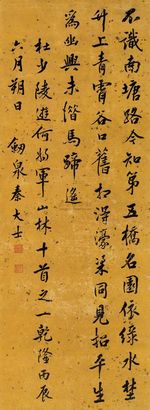 不識南塘路今知第五橋名園依綠水埜
竹上青霄谷口舊相得濠梁同見招平生
為幽興未惜馬蹄遙
杜少陵遊何將軍山林十首之一乾隆丙辰
六月朔日 劒泉秦大士